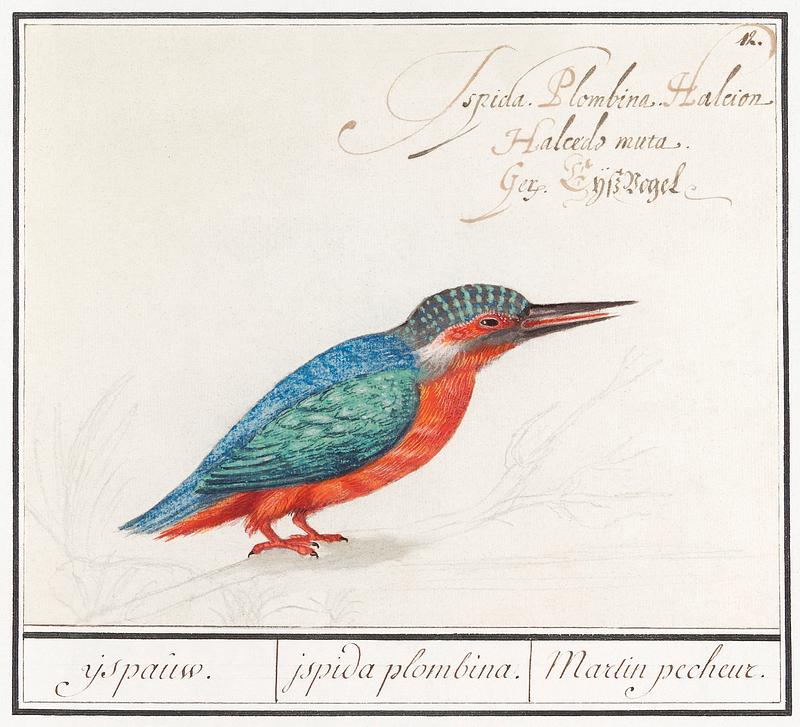 12.
Ispida. Plombina. Halcion
Halcedo muta.
Ger. EÿßVogel
ijspaûw.
jspida plombina.
Martin pecheur.